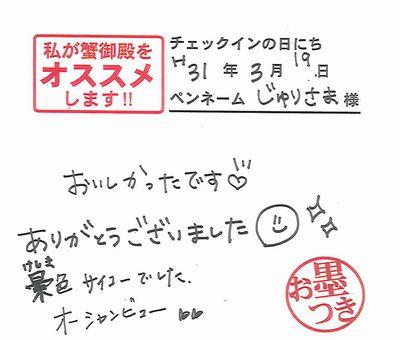 私が蟹御殿を
オススメ
します!!
チェックインの日にち
H31年3月19日
ペンネーム じゅりさま 様
おいしかったです♡
ありがとうございました
けしき
景色 サイコーでした.
オーシャンビュー
お墨つき